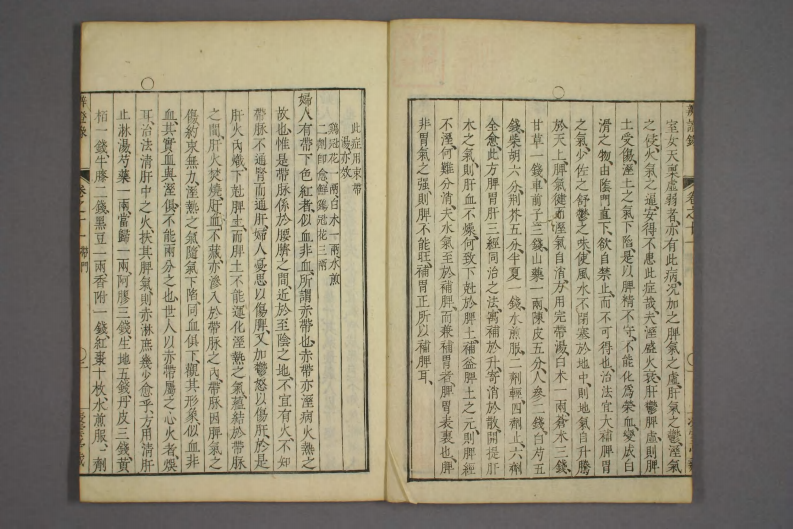 室女天稟虛弱者亦有此病況加之脾氣之虛肝氣之鬱溼氣
之侵火氣之逼安得不患此症哉夫溼盛火衰肝鬱脾虛則脾
土受傷溼土之氣下陷是以脾精不守不能化為榮血變成白
滑之物由陰門直下欲自禁止而不可得也治法宜大補脾胃
之氣少佐之舒鬱之味使風木不閉塞於地中則地氣自升騰
於天上脾氣健而溼氣自消方用完帶湯白木一兩蒼木三錢
甘草一錢車前子三錢山藥一兩陳皮五分人參二錢白芍五
錢柴胡六分荆芥五分半夏一錢水煎服二劑輕四劑止六劑
全愈此方脾胃肝三經同治之法寓補於升寄消於散開提肝
木之氣則肝血不燥何致下尅於脾土補益脾土之元則脾經
不溼何難分消夫水氣至於補脾而兼補胃者脾胃表裏也脾
非胃氣之强則脾不能旺補胃正所以補脾耳
此症用束帶
湯亦效
鷄冠花一兩白木一兩水煎
二劑即愈鮮鷄冠花三兩
婦人有帶下色紅者似血非血所謂赤帶也赤帶亦溼病火熱之
故也惟是帶脉係於腰臍之間近於至陰之地不宜有火不知
帶脉不通腎而通肝婦人憂思以傷脾又加鬱怒以傷肝於是
肝火内熾下尅脾土而脾土不能運化溼熱之氣蘊結於帶脉
之間肝火焚燒肝血不藏亦滲入於帶脉之内帶脉因脾氣之
傷約束無力溼熱之氣隨氣下陷同血俱下觀其形象似血非
血其實血與溼俱不能兩分之也世人以赤帶屬之心火者悞
耳治法清肝中之火扶其脾氣則赤淋庶幾少愈乎方用清肝
止淋湯芍藥一兩當歸一兩阿膠三錢生地五錢丹皮三錢黄
栢一錢牛膝二錢黑豆一兩香附一錢紅棗十枚水煎服一劑
辨證錄
卷之十一 帶門